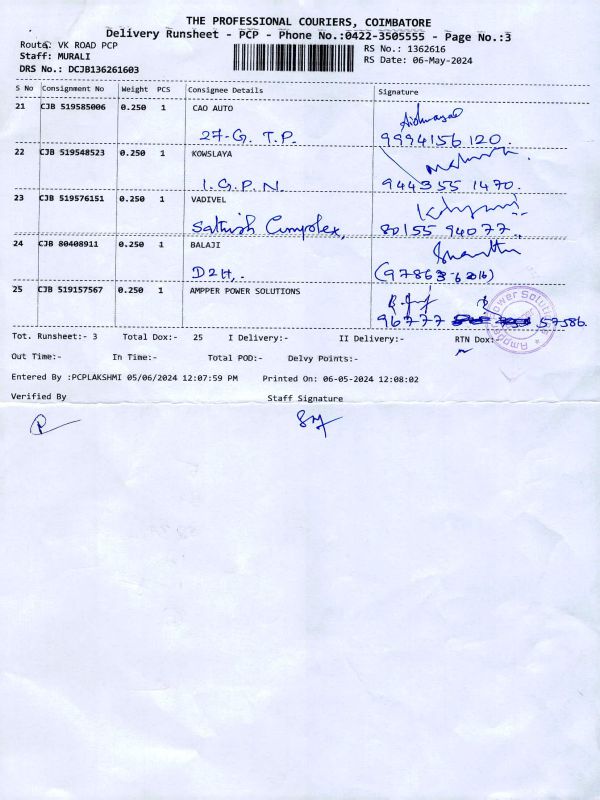 THE PROFESSIONAL COURIERS, COIMBATORE
Delivery Runsheet - PCP - Phone No.:0422-3505555 - Page No.:3
Route: VK ROAD PCP
RS No.: 1362616
Staff: MURALI
RS Date: 06-May-2024
DRS No.: DCJB136261603
S No Consignment No Weight PCS Consignee Details Signature
21 CJB 519585006 0.250 1 CAO AUTO
27-G. T.P. 9994156120.
22 CJB 519548523 0.250 1 KOWSLAYA
I.G.P.N. 944355 1470.
23 CJB 519576151 0.250 1 VADIVEL
Sathish Complex, 80155 94077.
24 CJB 80408911 0.250 1 BALAJI
D2H,.
25 CJB 519157567 0.250 1 AMPPER POWER SOLUTIONS
96777 57586.
Tot. Runsheet:- 3 Total Dox:- 25 I Delivery:- II Delivery:- RTN Dox:-
Out Time:- In Time:- Total POD:- Delvy Points:-
Entered By :PCPLAKSHMI 05/06/2024 12:07:59 PM Printed On: 06-05-2024 12:08:02
Verified By Staff Signature